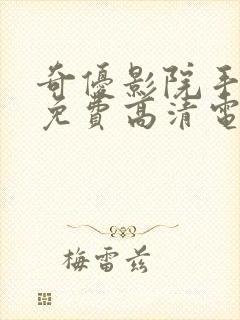 奇優影院手
免費高清電
梅雷兹